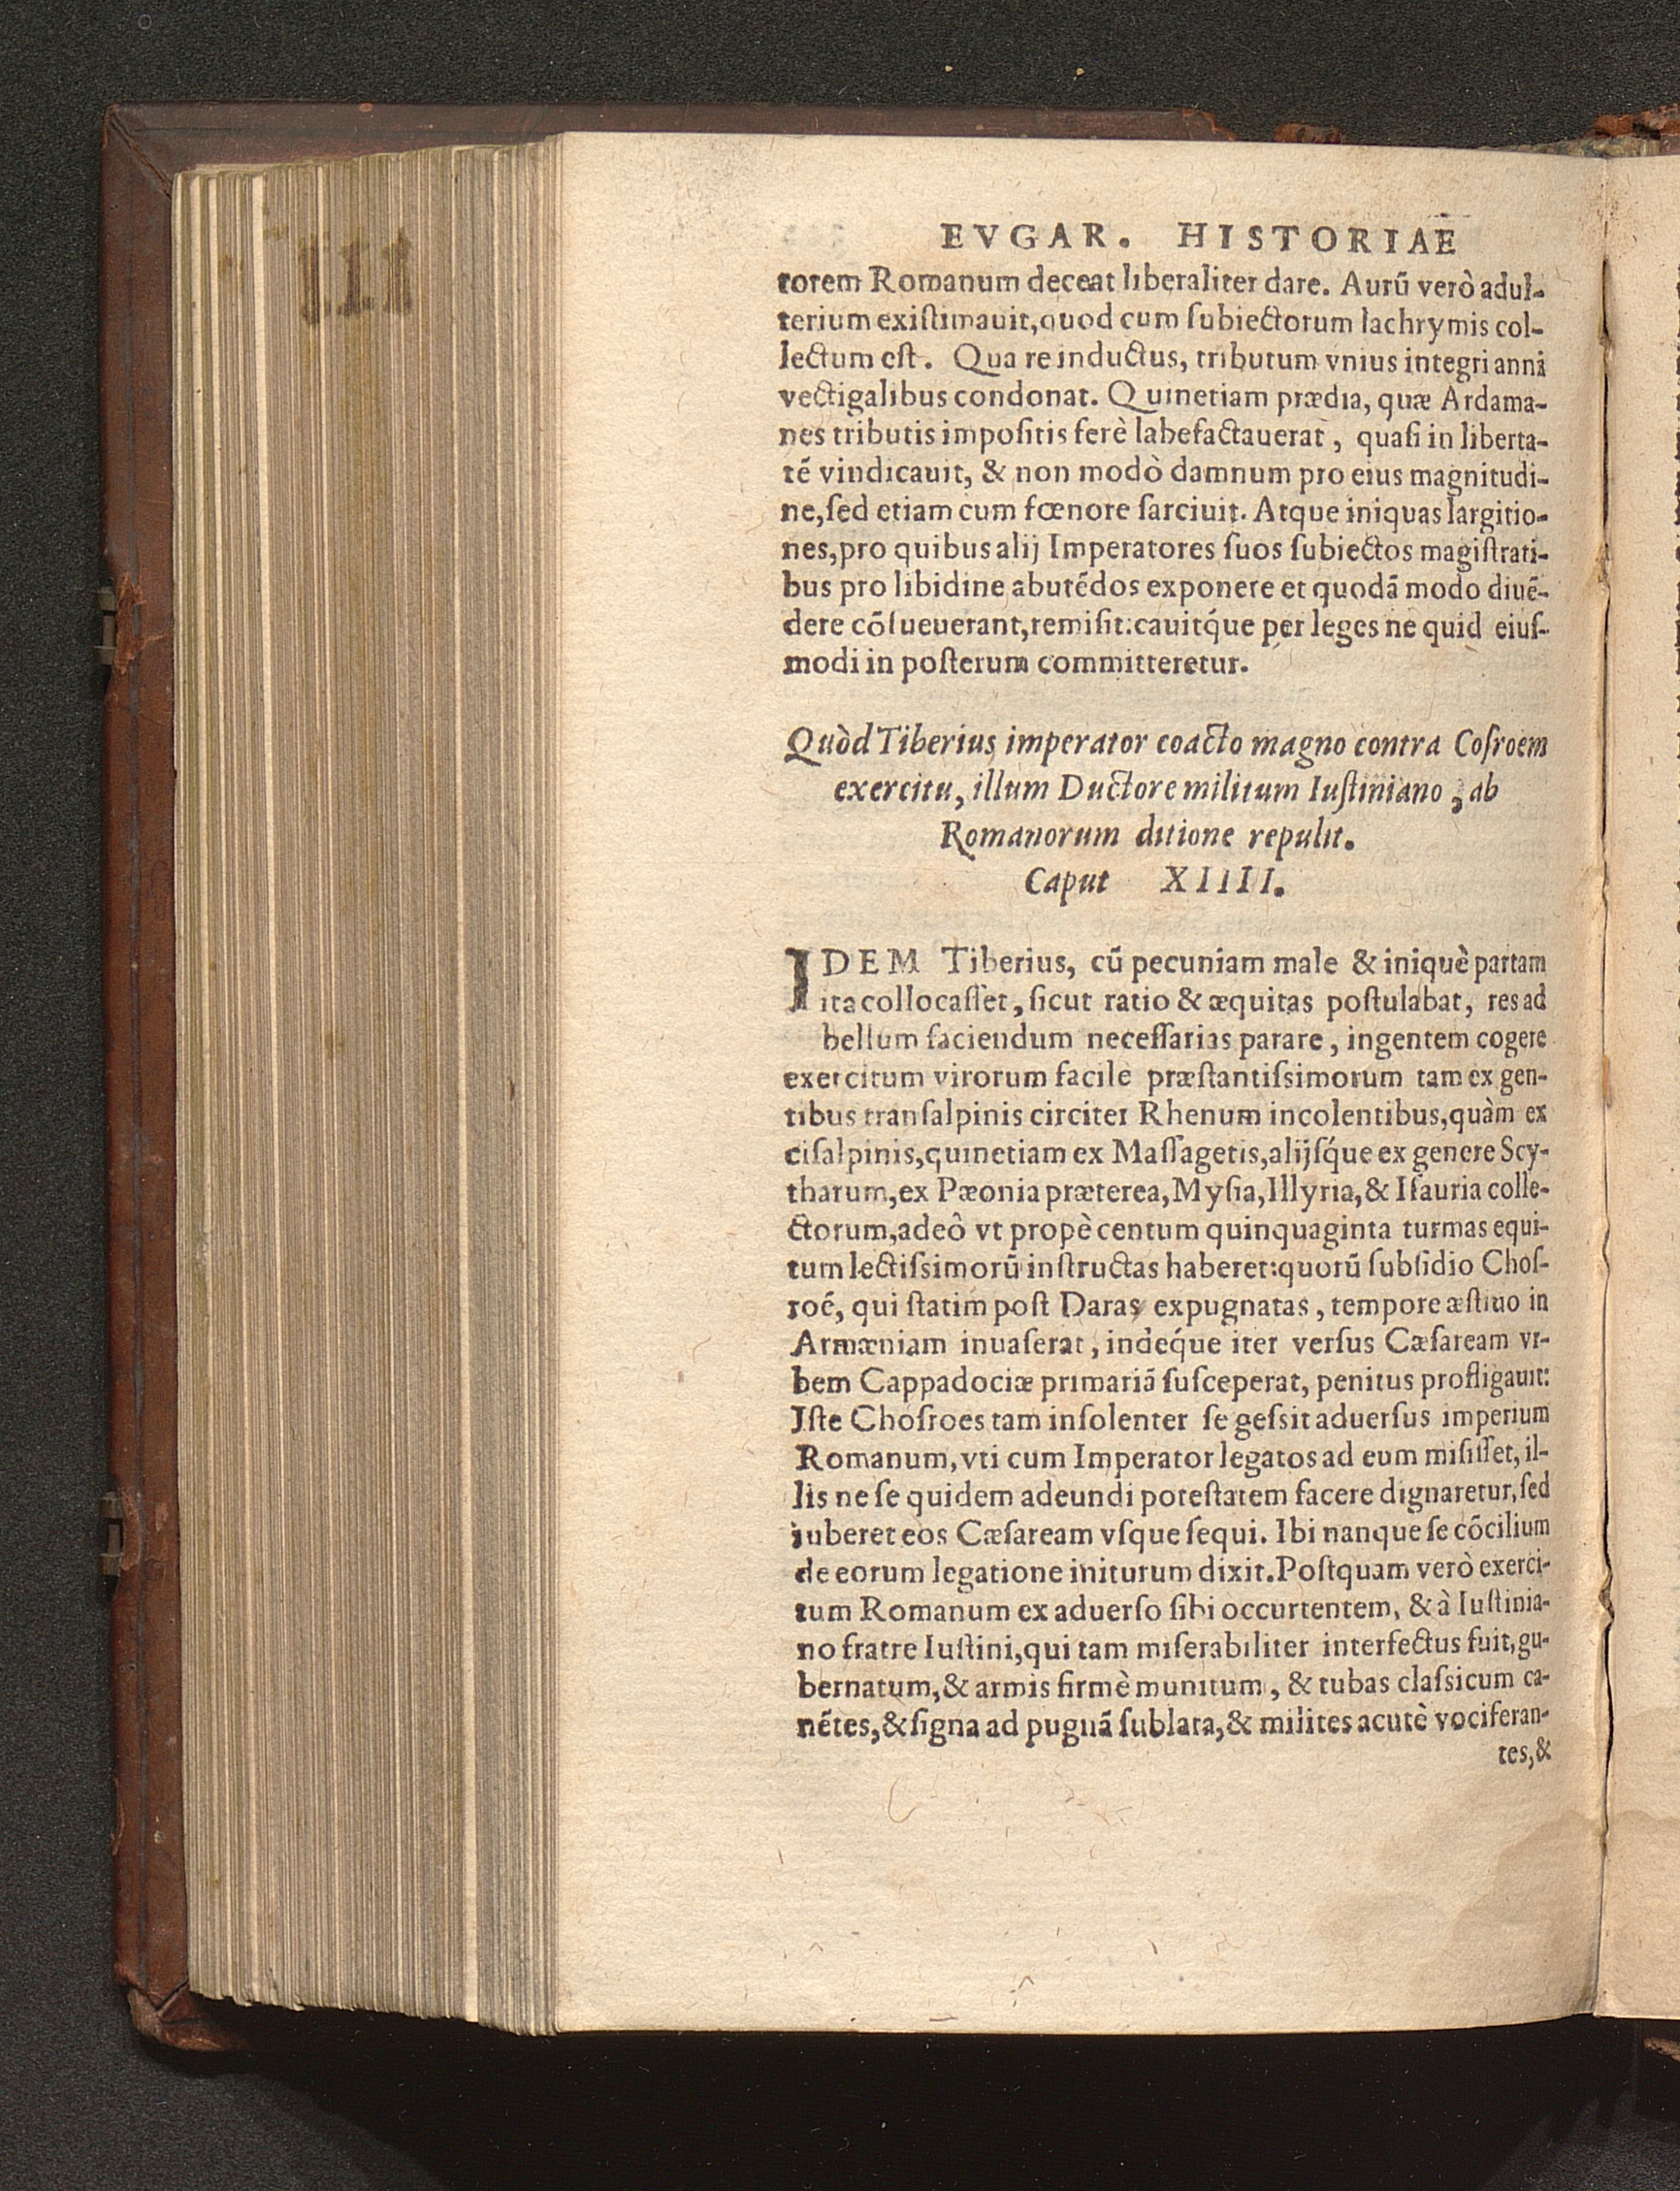 EVGAR. HISTORIAE
torem Romanum deceat liberaliter dare. Aurũ verò adul-
terium exiſtimauit, quod cum ſubiectorum lachrymis col-
lectum eſt. Qua re inductus, tributum vnius integri anni
vectigalibus condonat. Quinetiam prædia, quæ Ardama-
nes tributis impoſitis ferè labefactauerat, quaſi in liberta-
tẽ vindicauit, & non modò damnum pro eius magnitudi-
ne, ſed etiam cum fœnore ſarciuit. Atque iniquas largitio-
nes, pro quibus alij Imperatores ſuos ſubiectos magiſtrati-
bus pro libidine abutẽdos exponere et quodã modo diuẽ-
dere cõſueuerant, remiſit: cauitq́ue per leges ne quid eiuſ-
modi in poſterum committeretur.
Quòd Tiberius imperator coacto magno contra Coſroem
exercitu, illum Ductore militum Iuſtiniano, ab
Romanorum ditione repulit.
Caput XIIII.
IDEM Tiberius, cũ pecuniam male & iniquè partam
ita collocaſſet, ſicut ratio & æquitas poſtulabat, res ad
bellum faciendum neceſſarias parare, ingentem cogere
exercitum virorum facile præſtantiſsimorum tam ex gen-
tibus tranſalpinis circiter Rhenum incolentibus, quàm ex
ciſalpinis, quinetiam ex Maſſagetis, alijſq́ue ex genere Scy-
tharum, ex Pæonia præterea, Myſia, Illyria, & Iſauria colle-
ctorum, adeò vt propè centum quinquaginta turmas equi-
tum lectiſsimorũ inſtructas haberet: quorũ ſubſidio Choſ-
roẽ, qui ſtatim poſt Daras expugnatas, tempore æſtiuo in
Armæniam inuaſerat, indeq́ue iter verſus Cæſaream vr-
bem Cappadociæ primariã ſuſceperat, penitus profligauit:
Iſte Choſroes tam inſolenter ſe geſsit aduerſus imperium
Romanum, vti cum Imperator legatos ad eum miſiſſet, il-
lis ne ſe quidem adeundi poteſtatem facere dignaretur, ſed
iuberet eos Cæſaream vſque ſequi. Ibi nanque ſe cõcilium
de eorum legatione initurum dixit. Poſtquam verò exerci-
tum Romanum ex aduerſo ſibi occurrentem, & à Iuſtinia-
no fratre Iuſtini, qui tam miſerabiliter interfectus fuit, gu-
bernatum, & armis firmè munitum, & tubas claſsicum ca-
nẽtes, & ſigna ad pugnã ſublata, & milites acutè vociferan-
tes, &